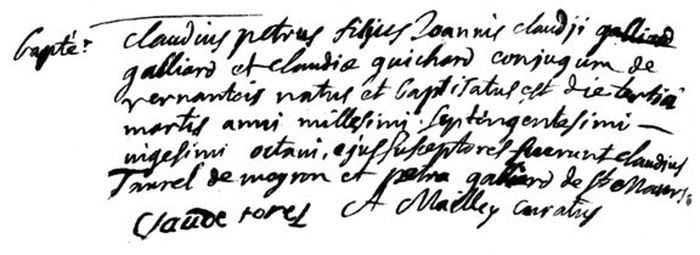 Bapté. Claudius petrus filius Joannis claudii galliard
galliard et claudiæ guichard conjugum de
vernantois natus et baptisatus est die tertia
martis anni millesimi septingentesimi
vigesimi octavi, ejus susceptores fuerunt claudius
Taurel de moyron et petra galliard de St
Claude A Mailley curatus